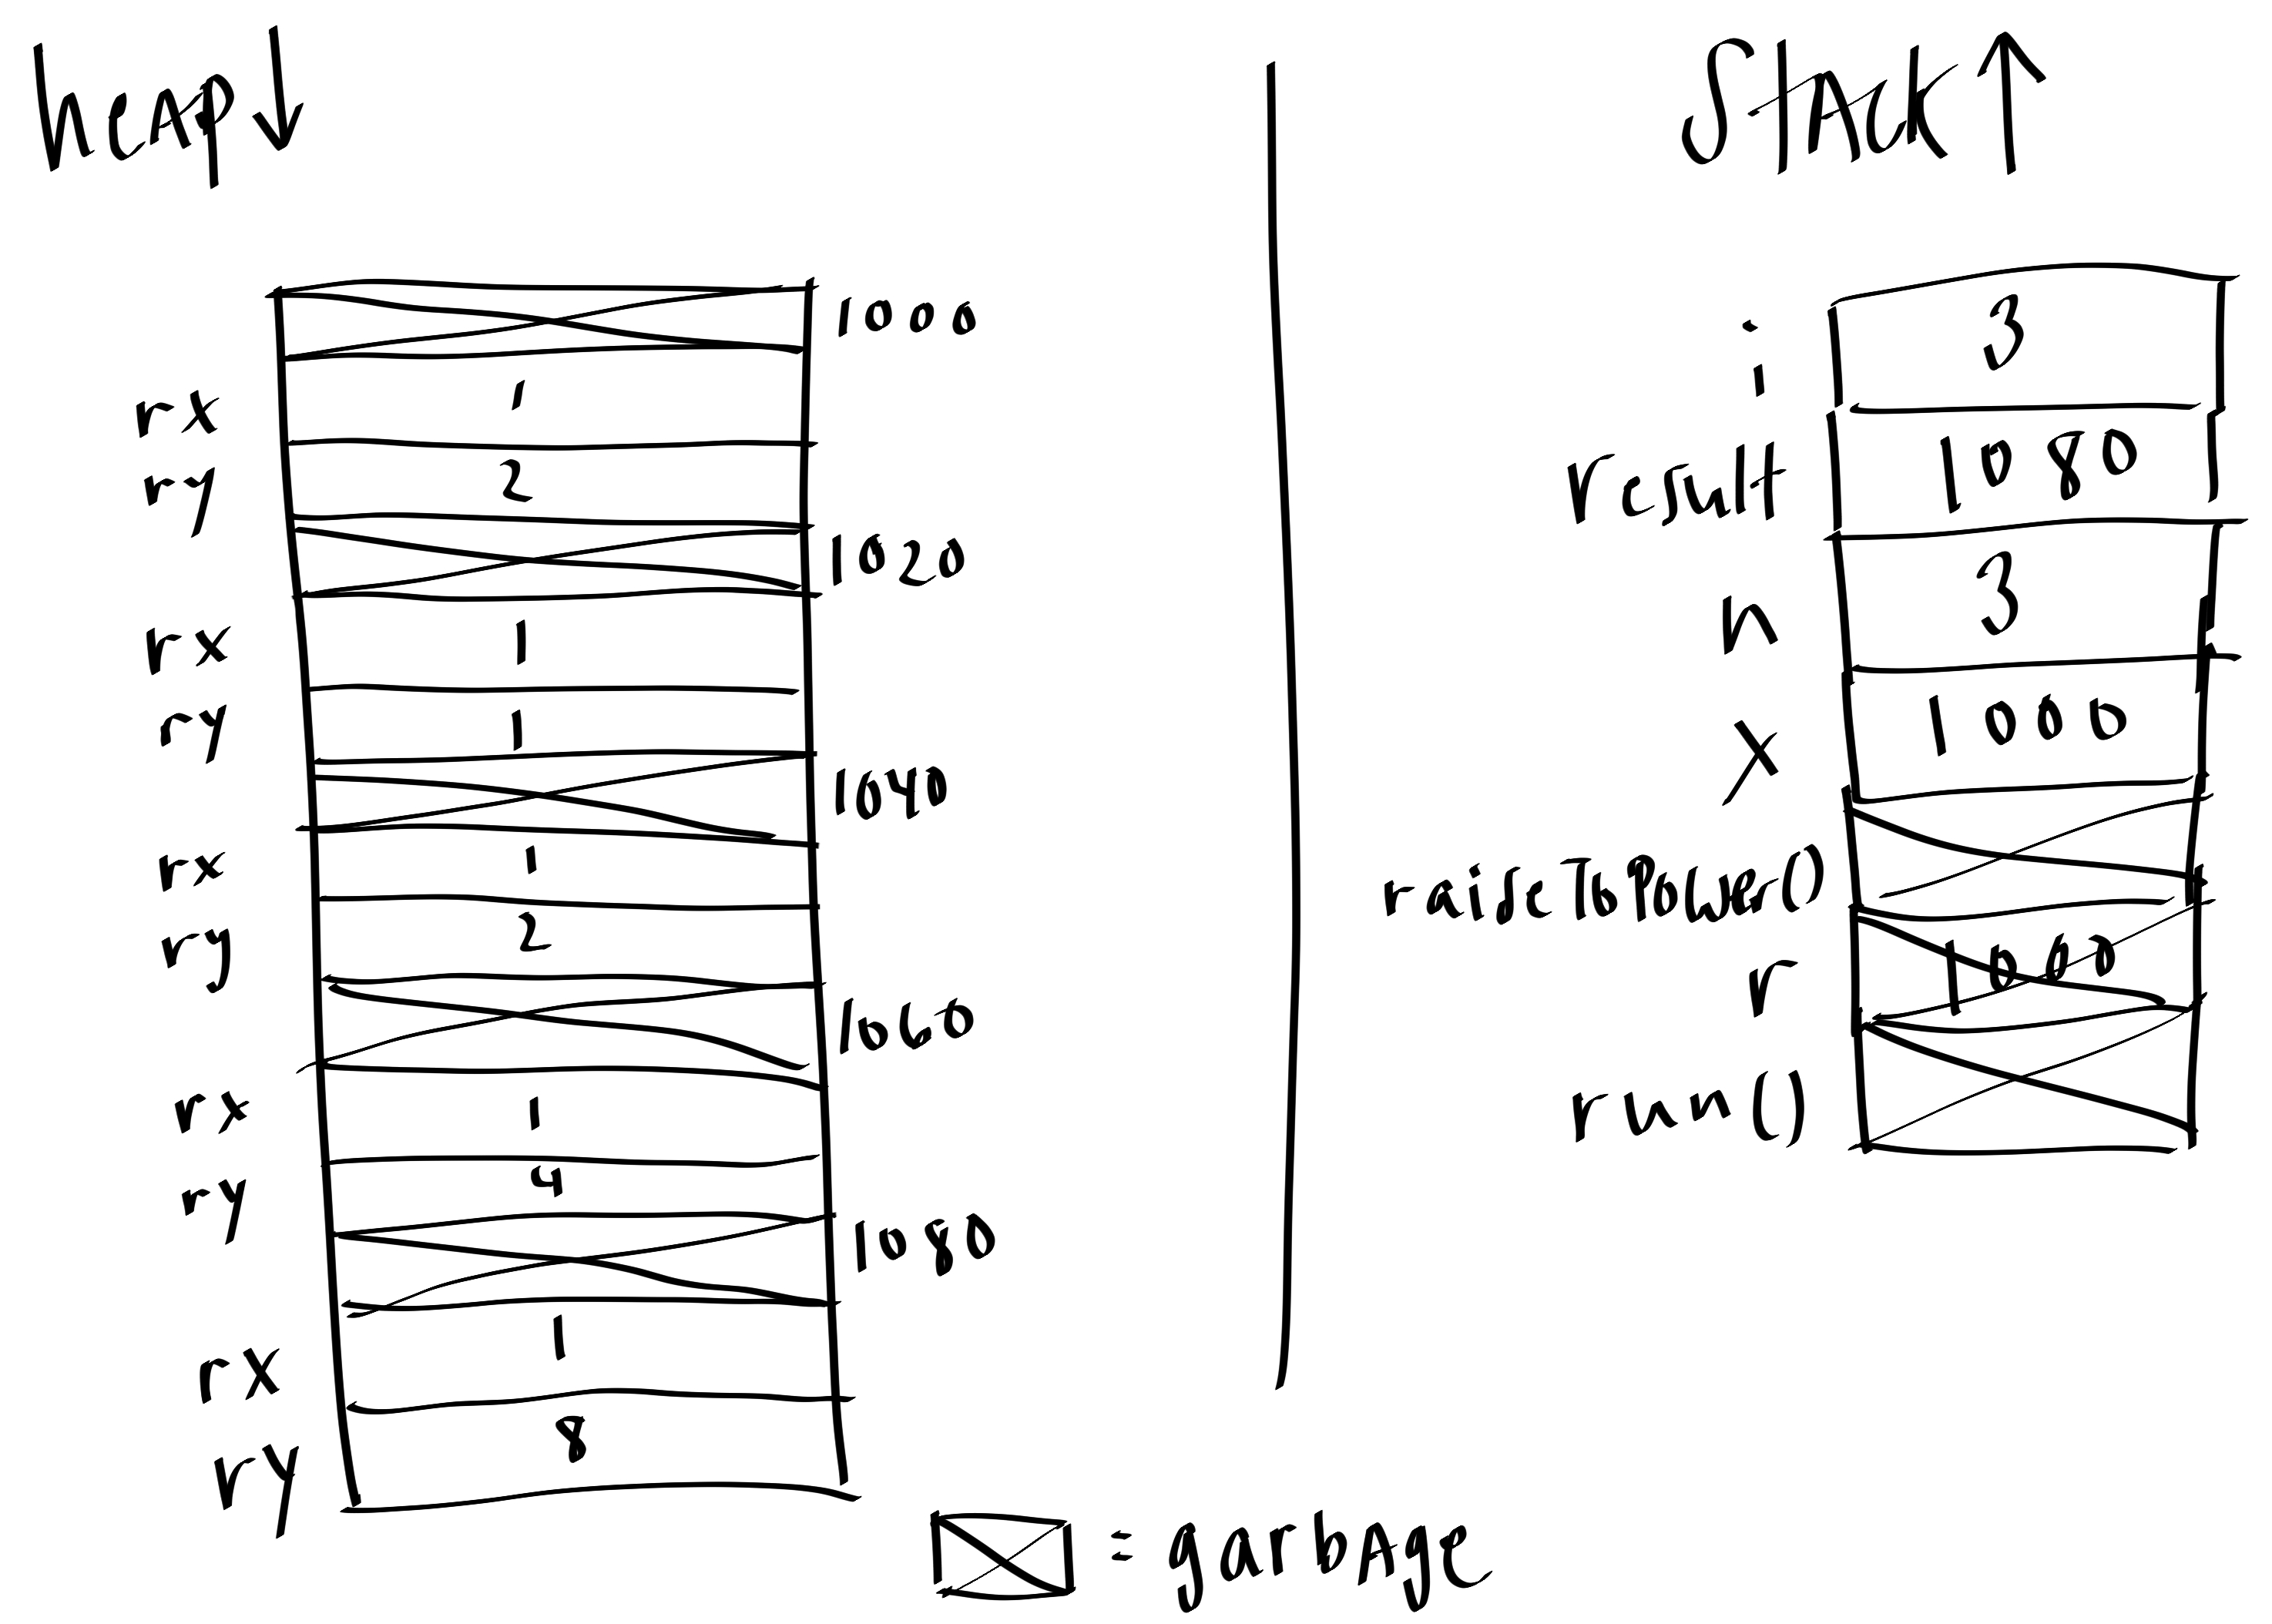 heap ↓
stack ↑
1000
rx 1
ry 2
1020
rx 1
ry 1
1040
rx 1
ry 2
1060
rx 1
ry 4
1080
rx 1
ry 8
i 3
result 1080
n 3
x 1000
raiseToPower()
r 1000
run()
= garbage